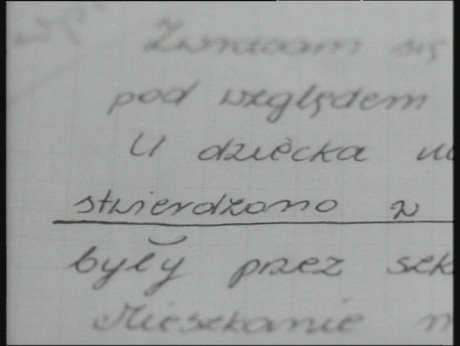 Zwracam się
pod względem
U dziecka
stwierdzono
były przez
Mieszkanie